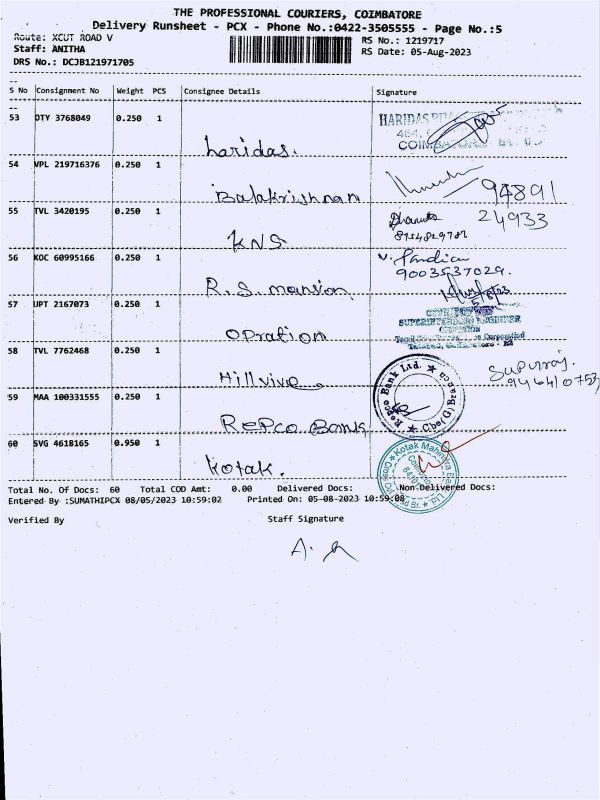 THE PROFESSIONAL COURIERS, COIMBATORE
Delivery Runsheet - PCX - Phone No.:0422-3505555 - Page No.:5
Route: XCUT ROAD V
RS No.: 1219717
Staff: ANITHA
RS Date: 05-Aug-2023
DRS No.: DCJB121971705
S No Consignment No Weight PCS Consignee Details Signature
53 DTY 3768049 0.250 1 haridas. HARIDAS
COIMBATORE
54 VPL 219716376 0.250 1 Balakrishnan 94891
24933
55 TVL 3420195 0.250 1 KNS
56 KOC 60995166 0.250 1 R.S. mansion V. Pandian
9003537029.
57 UPT 2167073 0.250 1 Opration
SUPERINTENDING ENGINEER
58 TVL 7762468 0.250 1 Hillvive
59 MAA 100331555 0.250 1 REPCO Bank Repco Bank Ltd. ★ Cbe(G) Branch ★
60 SVG 4618165 0.950 1 Kotak. Kotak Mahindra
Total No. Of Docs: 60 Total COD Amt: 0.00 Delivered Docs: Non-Delivered Docs:
Entered By :SUMATHIPCX 08/05/2023 10:59:02 Printed On: 05-08-2023 10:59:08
Verified By Staff Signature